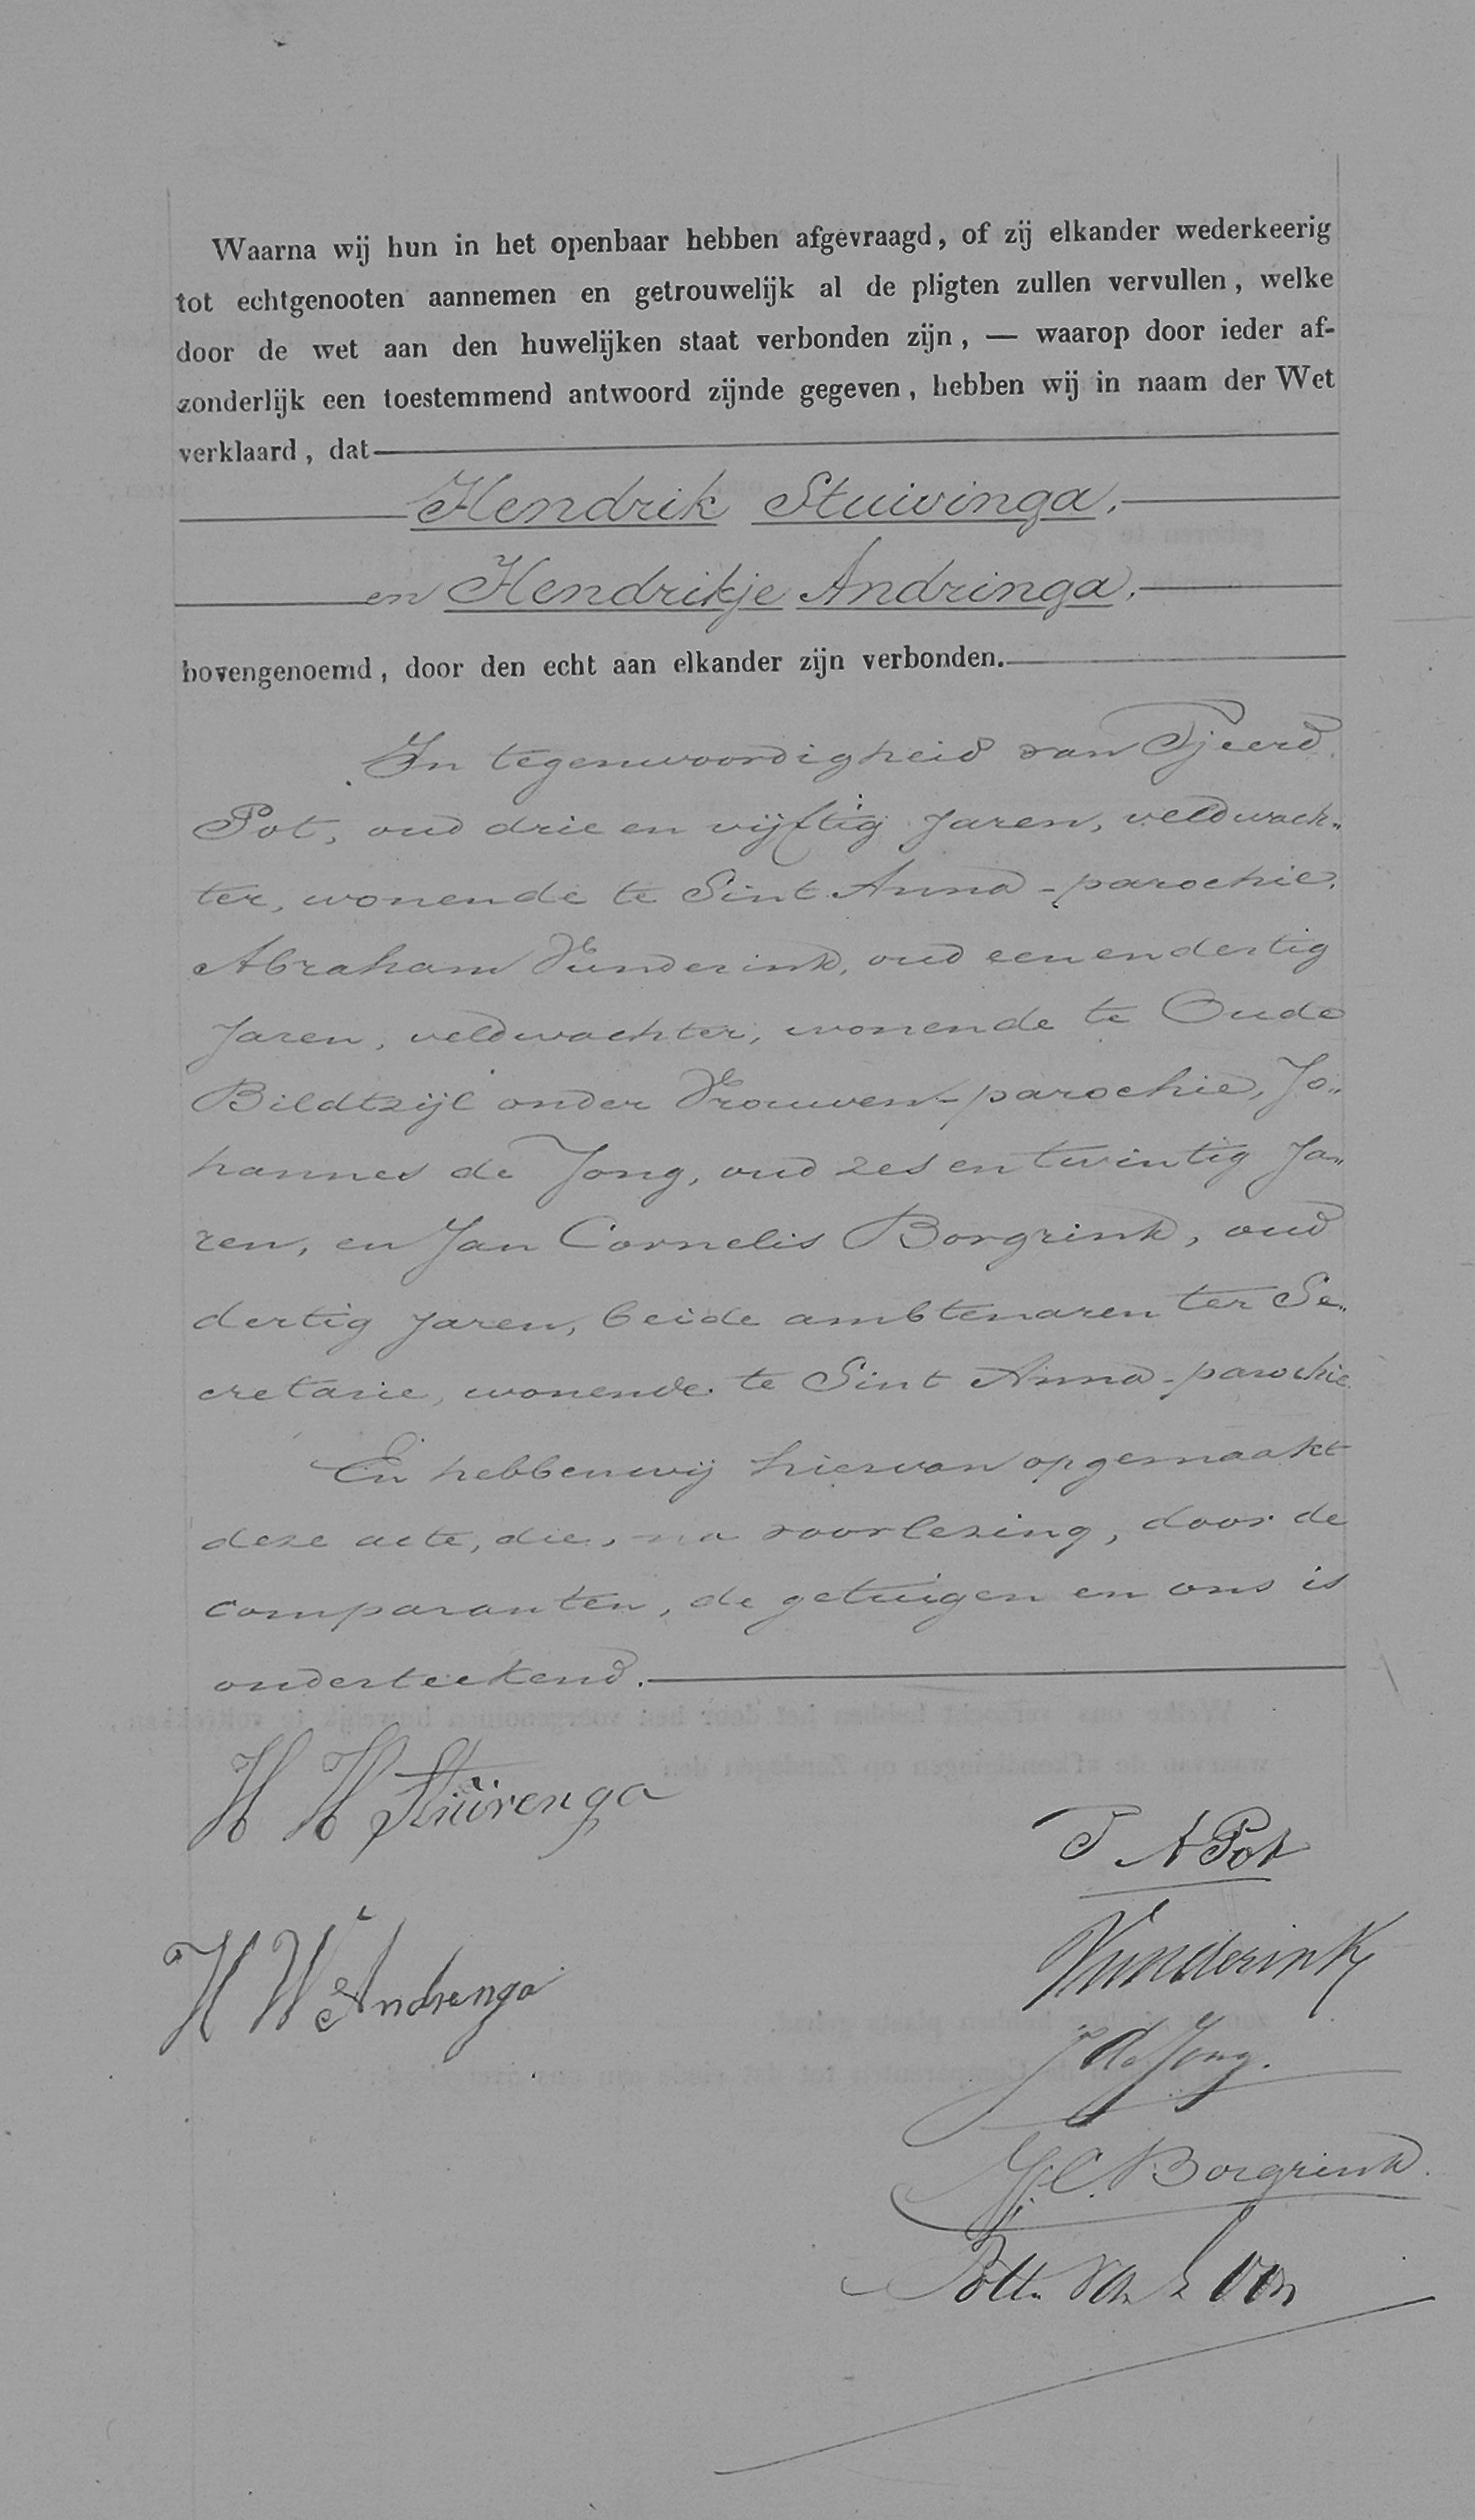 Waarna wij hun in het openbaar hebben afgevraagd, of zij elkander wederkeerig
tot echtgenooten aannemen en getrouwelijk al de pligten zullen vervullen, welke
door de wet aan den huwelijken staat verbonden zijn, — waarop door ieder af-
zonderlijk een toestemmend antwoord zijnde gegeven, hebben wij in naam der Wet
verklaard, dat
Hendrik Stuivinga,
en Hendrikje Andringa,
bovengenoemd, door den echt aan elkander zijn verbonden.
In tegenwoordigheid van Tjeerd
Pot, oud drie en vijftig jaren, veldwach„
ter, wonende te Sint Anna-parochie,
Abraham Vunderink, oud een en dertig
Jaren, veldwachter, wonende te Oude
Bildtzijl onder Vrouwen-parochie, Jo„
hannes de Jong, oud zes en twintig Ja„
ren, en Jan Cornelis Borgrink, oud
dertig jaren, beide ambtenaren ter Se„
cretarie, wonende te Sint Anna-parochie.
En hebben wij hiervan opgemaakt
deze acte, die, na voorlezing, door de
comparanten, de getuigen en ons is
onderteekend.
H H Stuivenga
T A Pot
Vunderink
H W Andrenga
J de Jong.
J.C. Borgrink.